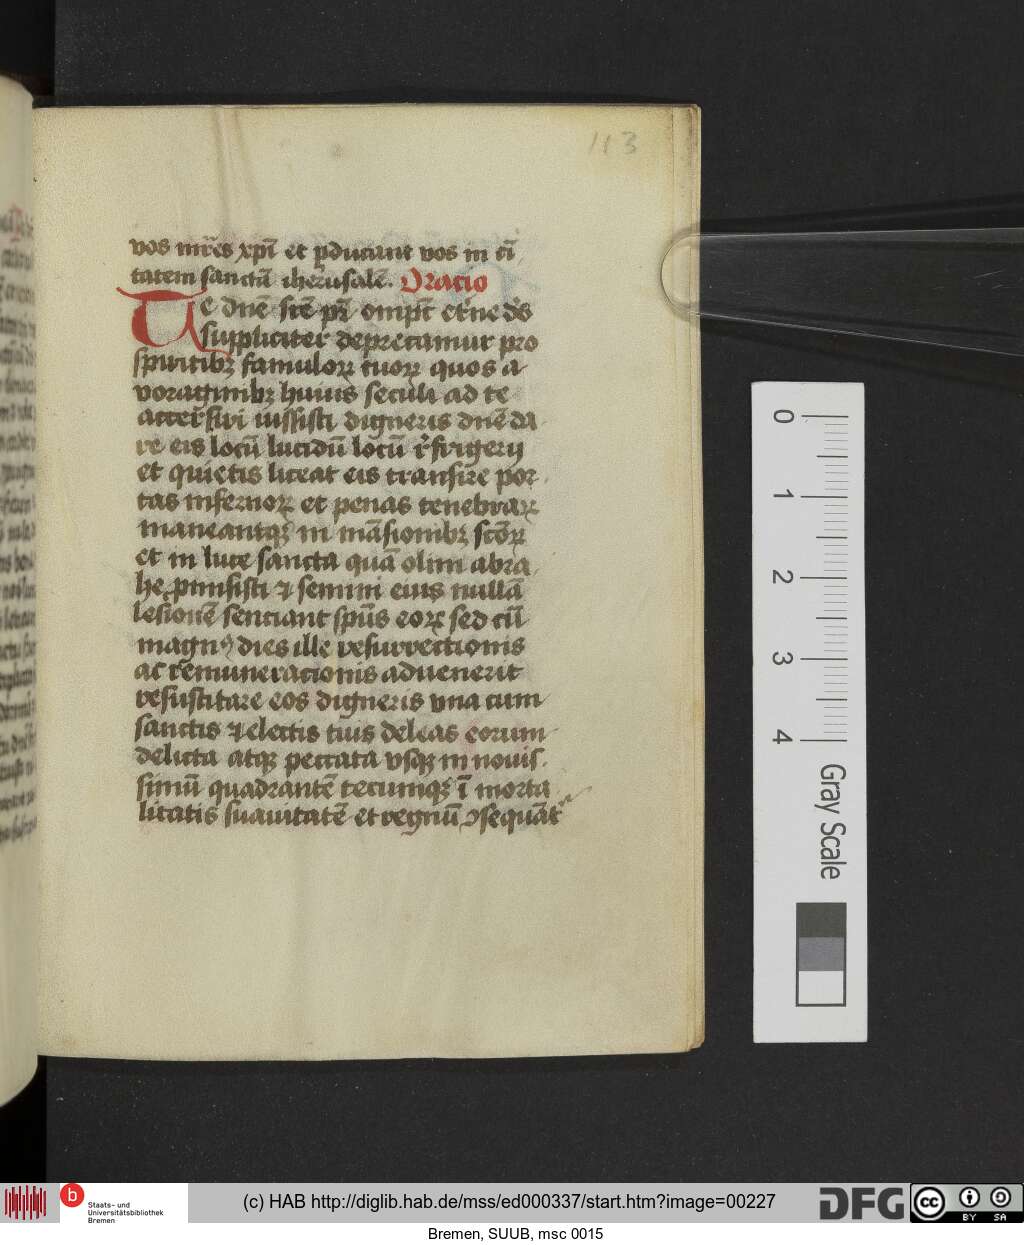 113
vos mr̄es xp̄i et pducant vos in ci
tatem sanctā iherusalē. Oracio
Te dn̄e sc̄e pr̄ omp̄c et'ne ds̄
suppliciter deprecamur pro
spiritibꝫ famuloꝝ tuoꝝ quos a
voraginibꝫ huius seculi ad te
accersiri iussisti digneris dn̄e da
re eis locū lucidū locū r'frigerij
et quietis liceat eis transire por
tas infernoꝝ et penas tenebraꝝ
maneantqꝫ in māsionibꝫ sctōꝝ
et in luce sancta quā olim abra
he pmisisti ⁊ semini eius nullā
lesionē senciant spūs eoꝝ sed cū
magnꝰ dies ille resurrectionis
ac r'emuneracionis aduenerit
resuscitare eos digneris vna cum
sanctis ⁊ electis tuis deleas eorum
delicta atqꝫ peccata vsqꝫ in nouis
simū quadrantē tecumqꝫ ī morta
litatis suauitatē et regnū ꝯsequāt᷑
0
1
2
3
4
Gray Scale
b Staats- und
Universitätsbibliothek
Bremen
(c) HAB http://diglib.hab.de/mss/ed000337/start.htm?image=00227
DFG
cc BY SA
Bremen, SUUB, msc 0015